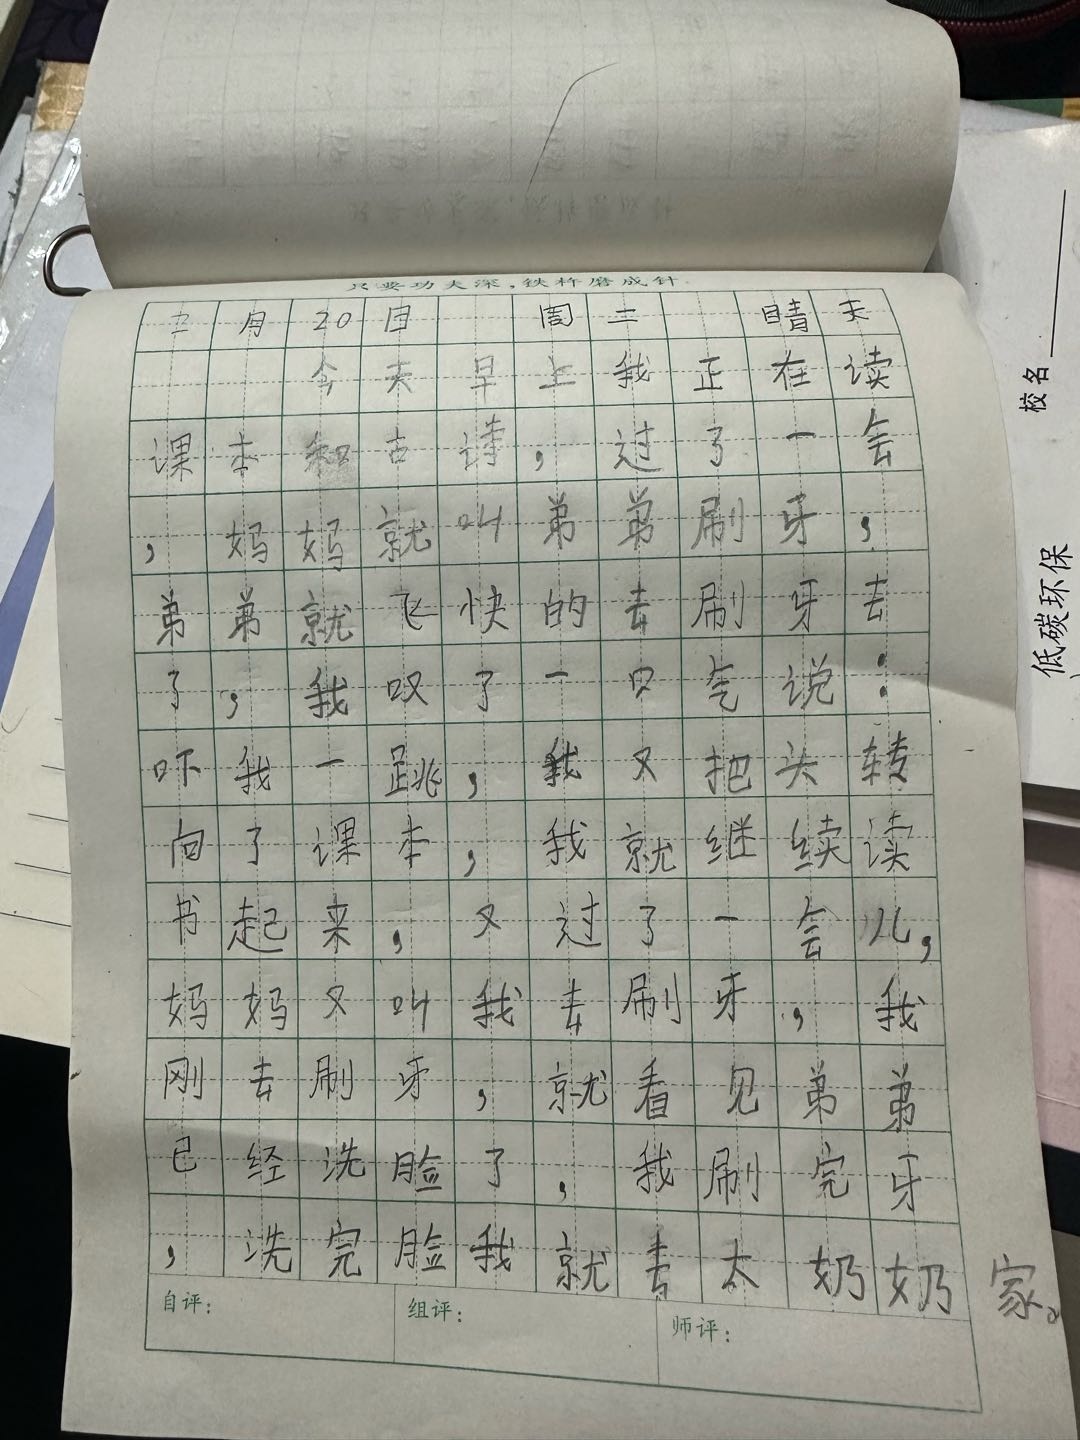 只要功夫深，铁杵磨成针
月20日 周二 晴天
今天早上我正在读
课本和古诗，过了一会
，妈妈就叫弟弟刷牙，
弟弟就飞快的去刷牙去
了，我叹了一口气说：
吓我一跳，我又把头转
向了课本，我就继续读
书起来，又过了一会儿，
妈妈又叫我去刷牙，我
刚去刷牙，就看见弟弟
已经洗脸了，我刷完牙
，洗完脸我就去太奶奶家。
自评： 组评： 师评：
校名
低碳环保